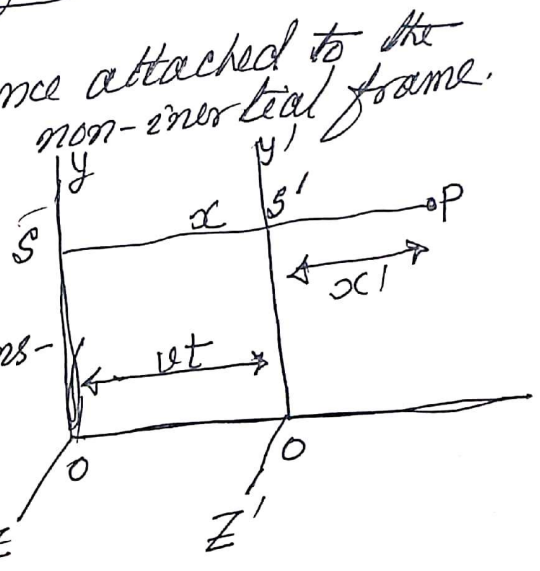 nce attached to the
non-inertial frame.
y y'
S x S' P
x'
ns- vt
O O
Z Z'